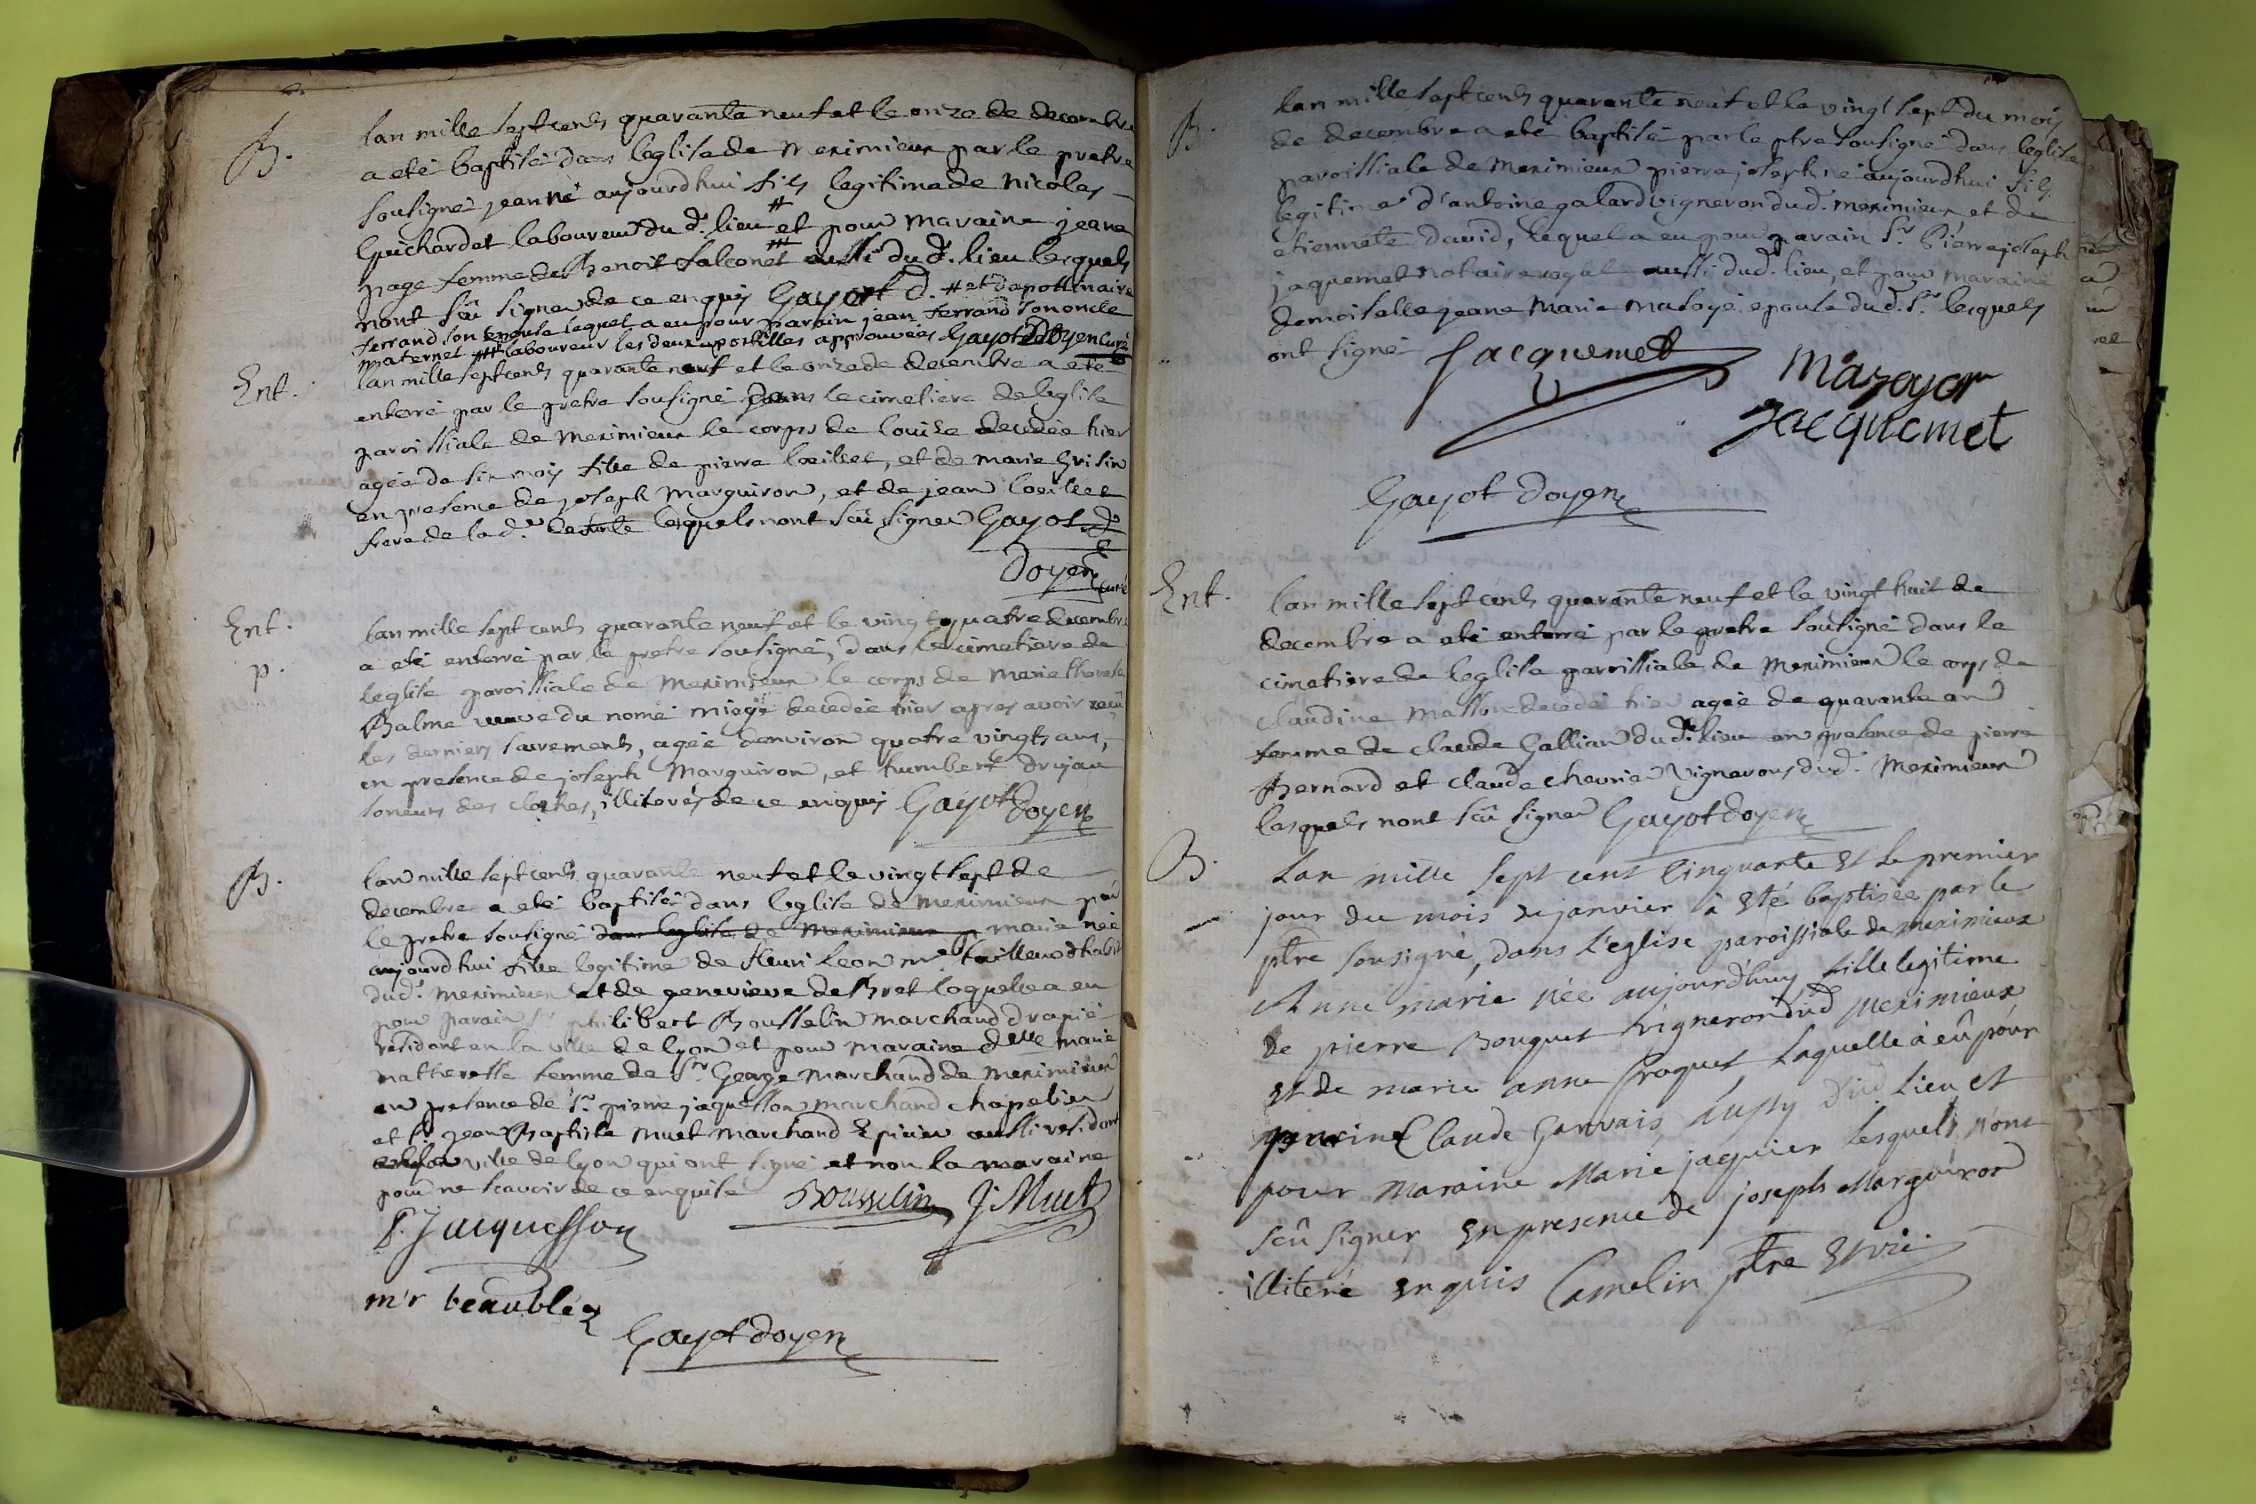 B.
lan mille sept cents quarante neuf et le onze de decembre
a eté baptisé dans leglise de meximieux par le pretre
sousigné jean né aujourdhui fils legitime de nicolas
Guichardet laboureur du d. lieu # et pour maraine jeane
page femme de Benoit falconet ## aussi du d. lieu lesquels
nont sçû signer de ce enquis Gayot d. # et dapollinaire
ferrand son epouse lequel a eu pour parain jean ferrand son oncle
maternel ## laboureur les deux apostilles approuvées Gayot Doyen curé
Ent.
lan mille sept cents quarante neuf et le onze de decembre a eté
enterré par le pretre sousigné dans le cimetiere de leglise
paroissiale de meximieux le corps de louise decedée hier
agée de six mois fille de pierre loeillet, et de marie Grisin
en presence de joseph Marguiron, et de jean loeillet
frere de la d. defunte lesquels nont sçû signer Gayot
Doyen curé
Ent.
p.
lan mille sept cents quarante neuf et le vingt quatre decembre
a eté enterré par le pretre sousigné, dans le cimetiere de
leglise paroissiale de meximieux le corps de marie therese
Balme veuve du nomé miege decedée hier apres avoir reçû
les derniers sacrements, agée denviron quatre vingts ans,
en presence de joseph Marguiron, et humbert drujau
soneurs des cloches, illiterés de ce enquis Gayot doyen
B.
lan mille sept cents quarante neuf et le vingt sept de
decembre a eté baptisé dans leglise de meximieux par
le pretre sousigné dans leglise de meximieux p marie née
aujourdhui fille legitime de fleuri leon me tailleur dhabit
dud. meximieux et de genevieve de Bret laquelle a eu
pour parain sr philibert Bousselin marchand drapié
residant en la ville de lyon et pour maraine dlle marie
femme de Sr George marchand de meximieux
en presence de Sr pierre jaquesson marchand chapelier
et Sr jean Baptiste muet marchand Epicier aussi residant
ville de lyon qui ont signé et non la maraine
pour ne scavoir de ce enquise Bousselin J. Muet
P. Jacquesson
m'r beaublé
Gayot doyen
B.
lan mille sept cents quarante neuf et le vingt sept du mois
de decembre a eté baptisé par le ptre sousigné dans leglise
paroissiale de meximieux pierre joseph né aujourdhui fils
legitime d'antoine galard vigneron dud. meximieux et de
etiennete david, lequel a eu pour parain Sr Pierre joseph
jaquemet notaire royal aussi dud. lieu, et pour maraine
demoiselle jeane marie masoyé epouse du d. Sr lesquels
ont signé Jacquemet
Mazoyer
Jacquemet
Gayot doyen
Ent.
lan mille sept cents quarante neuf et le vingt huit de
decembre a eté enterré par le pretre sousigné dans le
cimetiere de leglise paroissiale de meximieux le corps de
claudine masson decedé hier agée de quarante an
femme de claude Gallian du d. lieu en presence de pierre
Bernard et claude chevrier vignerons dud. meximieux
lesquels nont sçû signer Gayot doyen
B.
Lan mille sept cent cinquante Et le premier
jour du mois de janvier à Eté baptisée par le
ptre sousigné, dans l'eglise paroissiale de meximieux
Anne marie née aujourd'huy fille legitime
de pierre Bouquet vigneron dud meximieux
Et de marie anne Croquet, laquelle à eû pour
parein Claude Garvais aussy dud lieu et
pour maraine Marie jaquier lesquels n'ont
sçû signer En presence de joseph Marguiron
illiteré Enquis Camelin ptre Et vic.